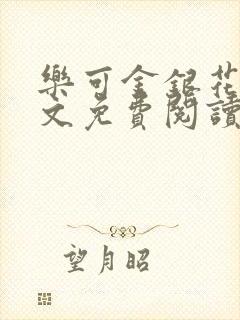 樂可金銀花
文免費閱讀
望月昭